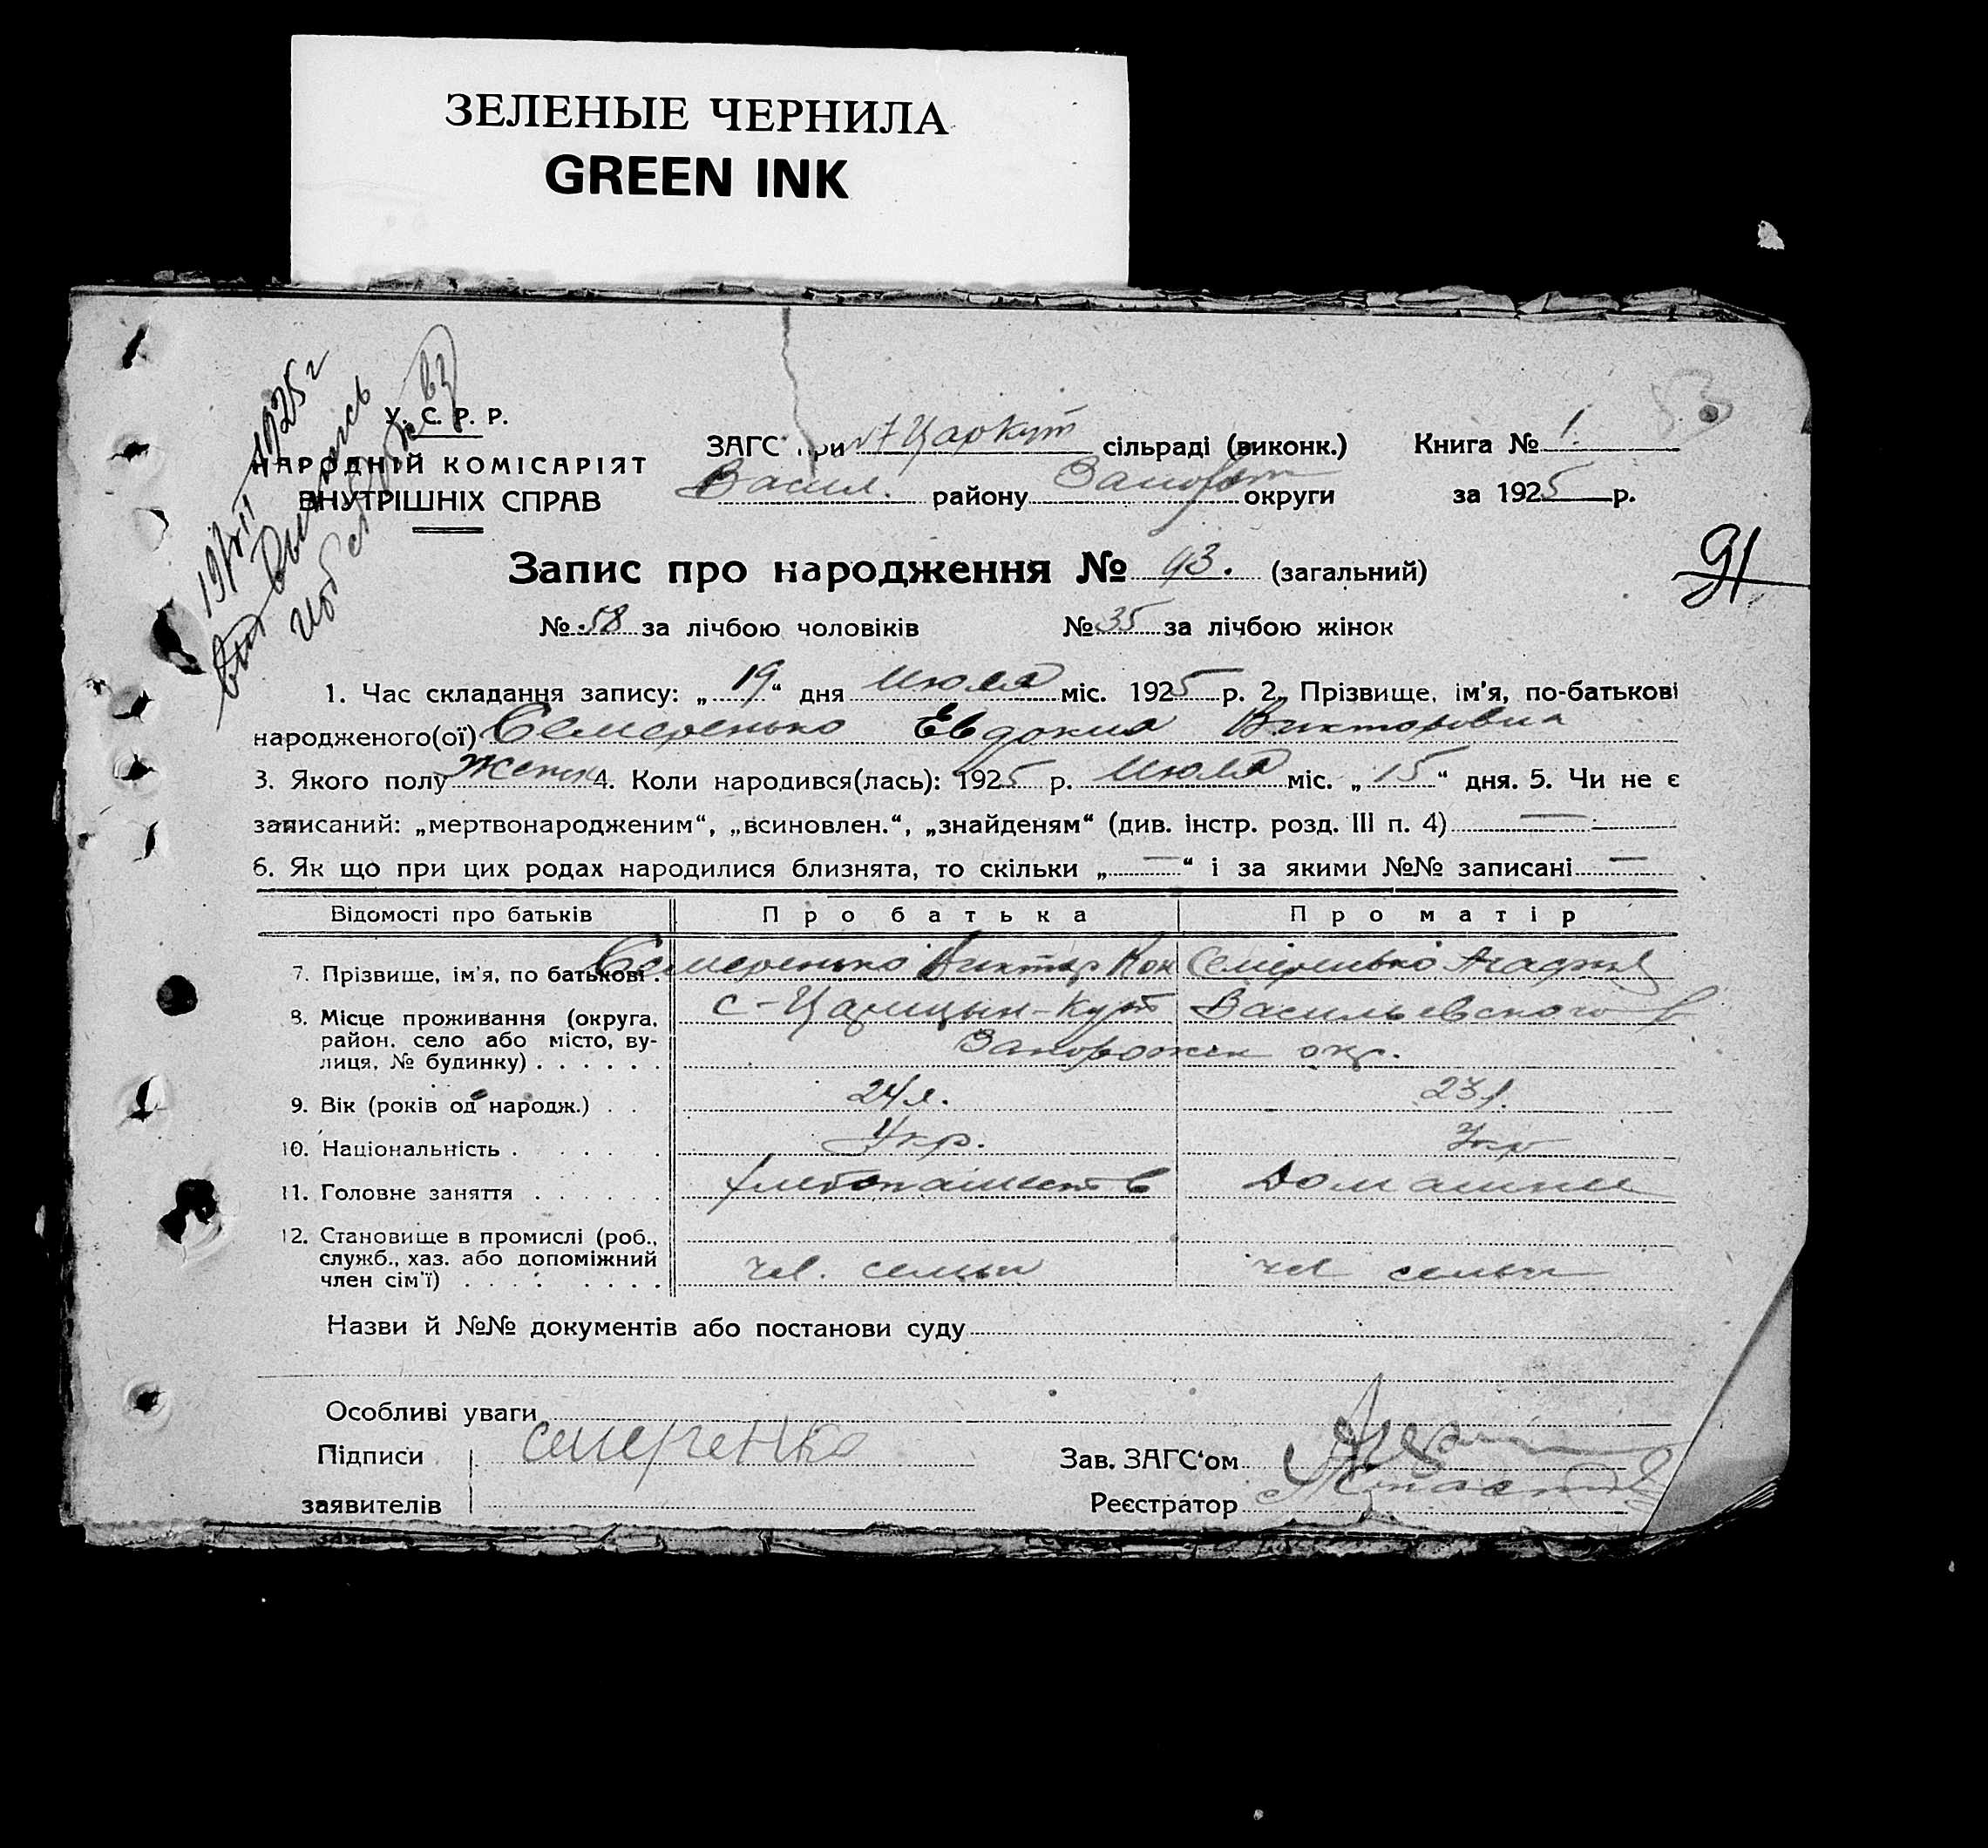 ЗЕЛЕНЫЕ ЧЕРНИЛА
GREEN INK
53
19/VII 1925 г
У. С. Р. Р.
НАРОДНІЙ КОМІСАРІЯТ
ВНУТРІШНІХ СПРАВ
ЗАГС при Царкут сільраді (виконк.) Книга № 1.
Васил. району округи за 1925 р.
91
Запис про народження № 93. (загальний)
№ 58 за лічбою чоловіків № 35 за лічбою жінок
1. Час складання запису: „19“ дня Июля міс. 1925 р. 2. Прізвище, ім'я, по-батькові
народженого(ої) Семеренько Евдокия Викторовна
3. Якого полу Женск 4. Коли народився(лась): 1925 р. Июля міс. „15“ дня. 5. Чи не є
записаний: „мертвонародженим“, „всиновлен.“, „знайденям“ (див. інстр. розд. III п. 4) —
6. Як що при цих родах народилися близнята, то скільки „—“ і за якими №№ записані —
Відомості про батьків Про батька Про матір
7. Прізвище, ім'я, по батькові . Семеренько Виктор Кон Семеренько Агафия
8. Місце проживання (округа, район, село або місто, вулиця, № будинку) . . . . . . с-Царицын-Кут Васильевского р
Запорожск окр.
9. Вік (років од народж.) . . 24 л. 23 л.
10. Національність . . . . . . Укр. Укр
11. Головне заняття . . . . . . хлебопашеств Домашнее
12. Становище в промислі (роб.,
служб., хаз. або допоміжний
член сім'ї) . . . . . . . . чл. семьи чл семьи
Назви й №№ документів або постанови суду
Особливі уваги
Підписи семеренко Зав. ЗАГС'ом
заявителів Реєстратор